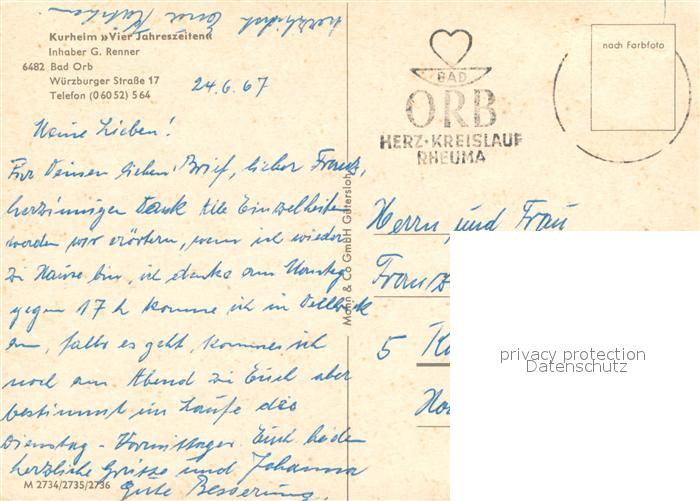 herzlichst Eure
Kurheim »Vier Jahreszeiten«
Inhaber G. Renner
6482 Bad Orb
Würzburger Straße 17
Telefon (0 60 52) 5 64
24.6.67
Meine Lieben!
Für Deinen lieben Brief, lieber Franz,
herzinnigen Dank Alle Einzelheiten
werden wir erörtern, wenn ich wieder
zu Hause bin, ich denke am Montag
gegen 17 h komme ich in Dellbrück
an, falls es geht, komme ich
noch am Abend zu Euch aber
bestimmt im Laufe des
Dienstag-Vormittages. Euch beiden
herzliche Grüsse und Johanna
gute Besserung.
M 2734/2735/2736
Mann & Co GmbH Gütersloh
BAD
ORB
HERZ·KREISLAUF
RHEUMA
nach Farbfoto
Herrn und Frau
Franz
5 K
privacy protection
Datenschutz